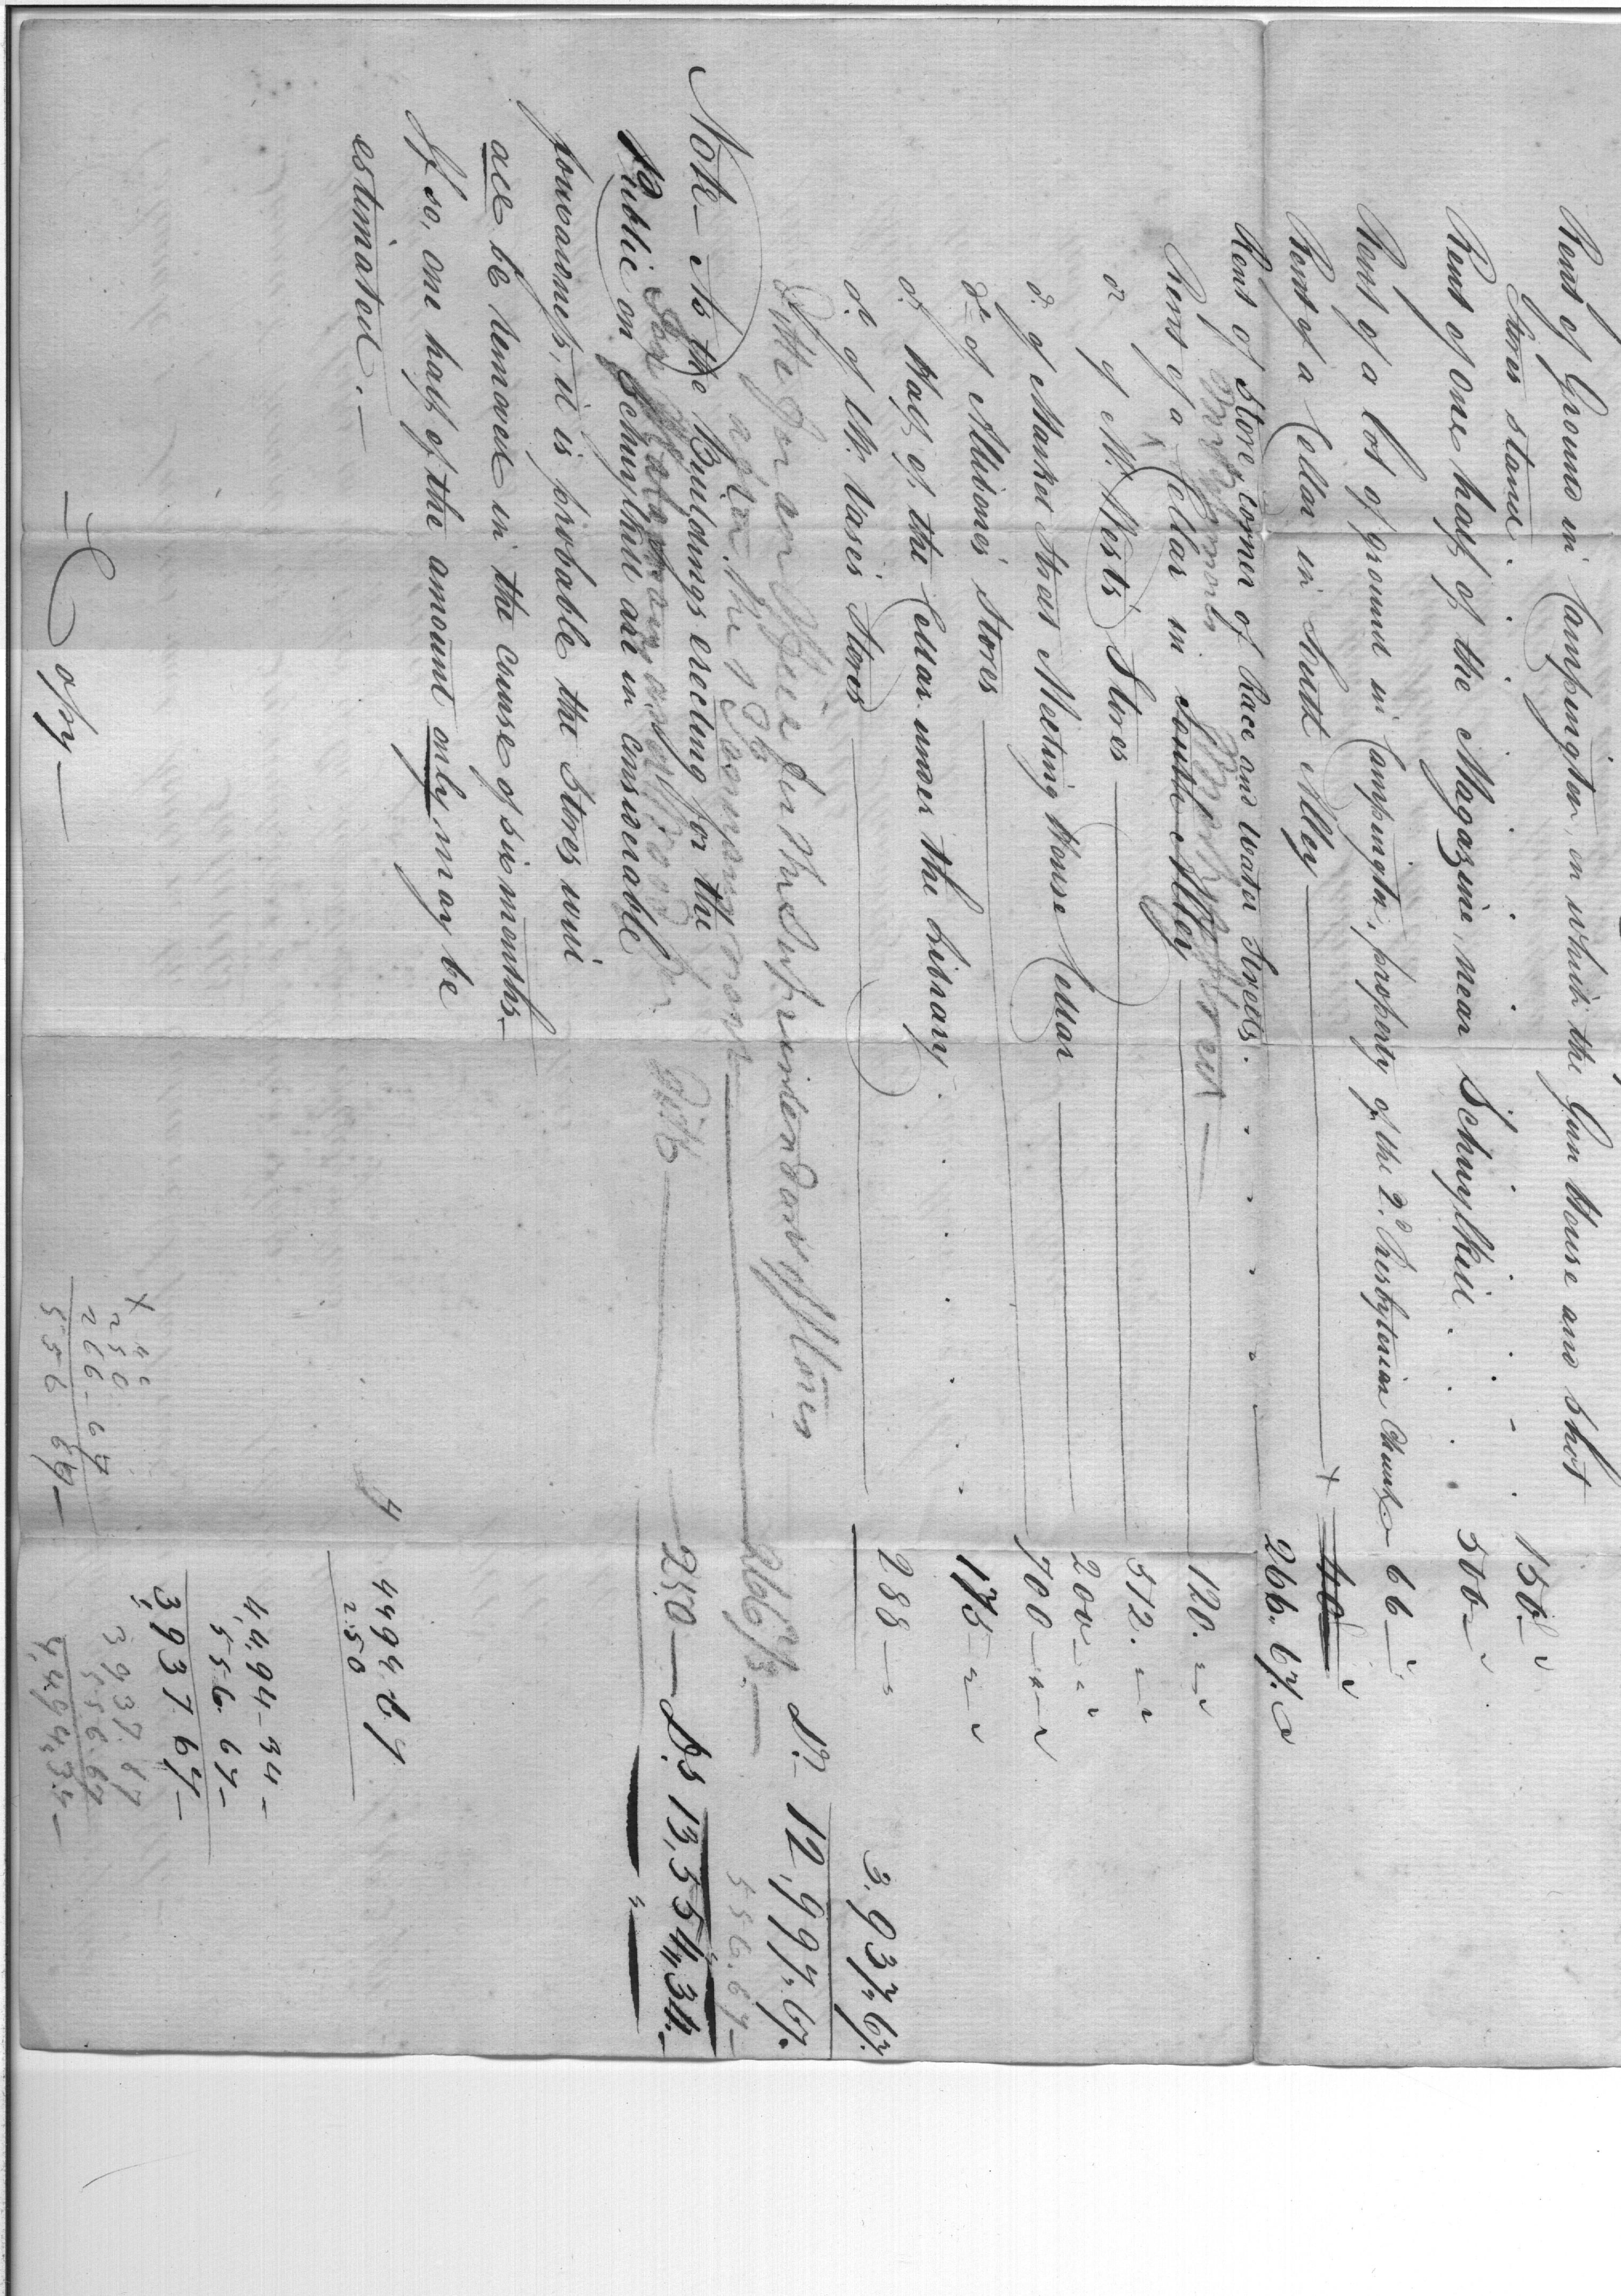 Rent of Ground in Campington, on which the Gun House and Shot
Stores stand . . . . . . 150
Rent of one half of the Magazine near Schuylkill . . . 500
Rent of a lot of ground in Campington, property of the 2d. Presbyterian Church 66
Rent of a Cellar in South Alley x 40
Rent of Store, corner of Race and Water Streets . . . . . 266.67.
Rent of a Cellar in South Alley 120.
do of N. West's Stores 512.
do of Market Street Meeting House Cellar 200
do of Allibone's Stores 700
do Half of the Cellar under the Library . . . . 175
do of Mr. Vase's Stores 288 3.937.67.
Ditto for an Office for the Superintendant of Mil Stores
after the 1 January next 266 2/3
Dr. 12,997.67.
556.67
250 Ds 13,554,34.
Note — As the Buildings erecting for the
Public on Schuylkill are in considerable
forwardness, it is probable the Stores will
all be removed in the course of six months.
If so, one half of the amount only may be
estimated. —
Copy —
250
4,494-34
556.67
3,937 67
3937.67
556.67
4,494.34
x 40
250
266-67
556 67